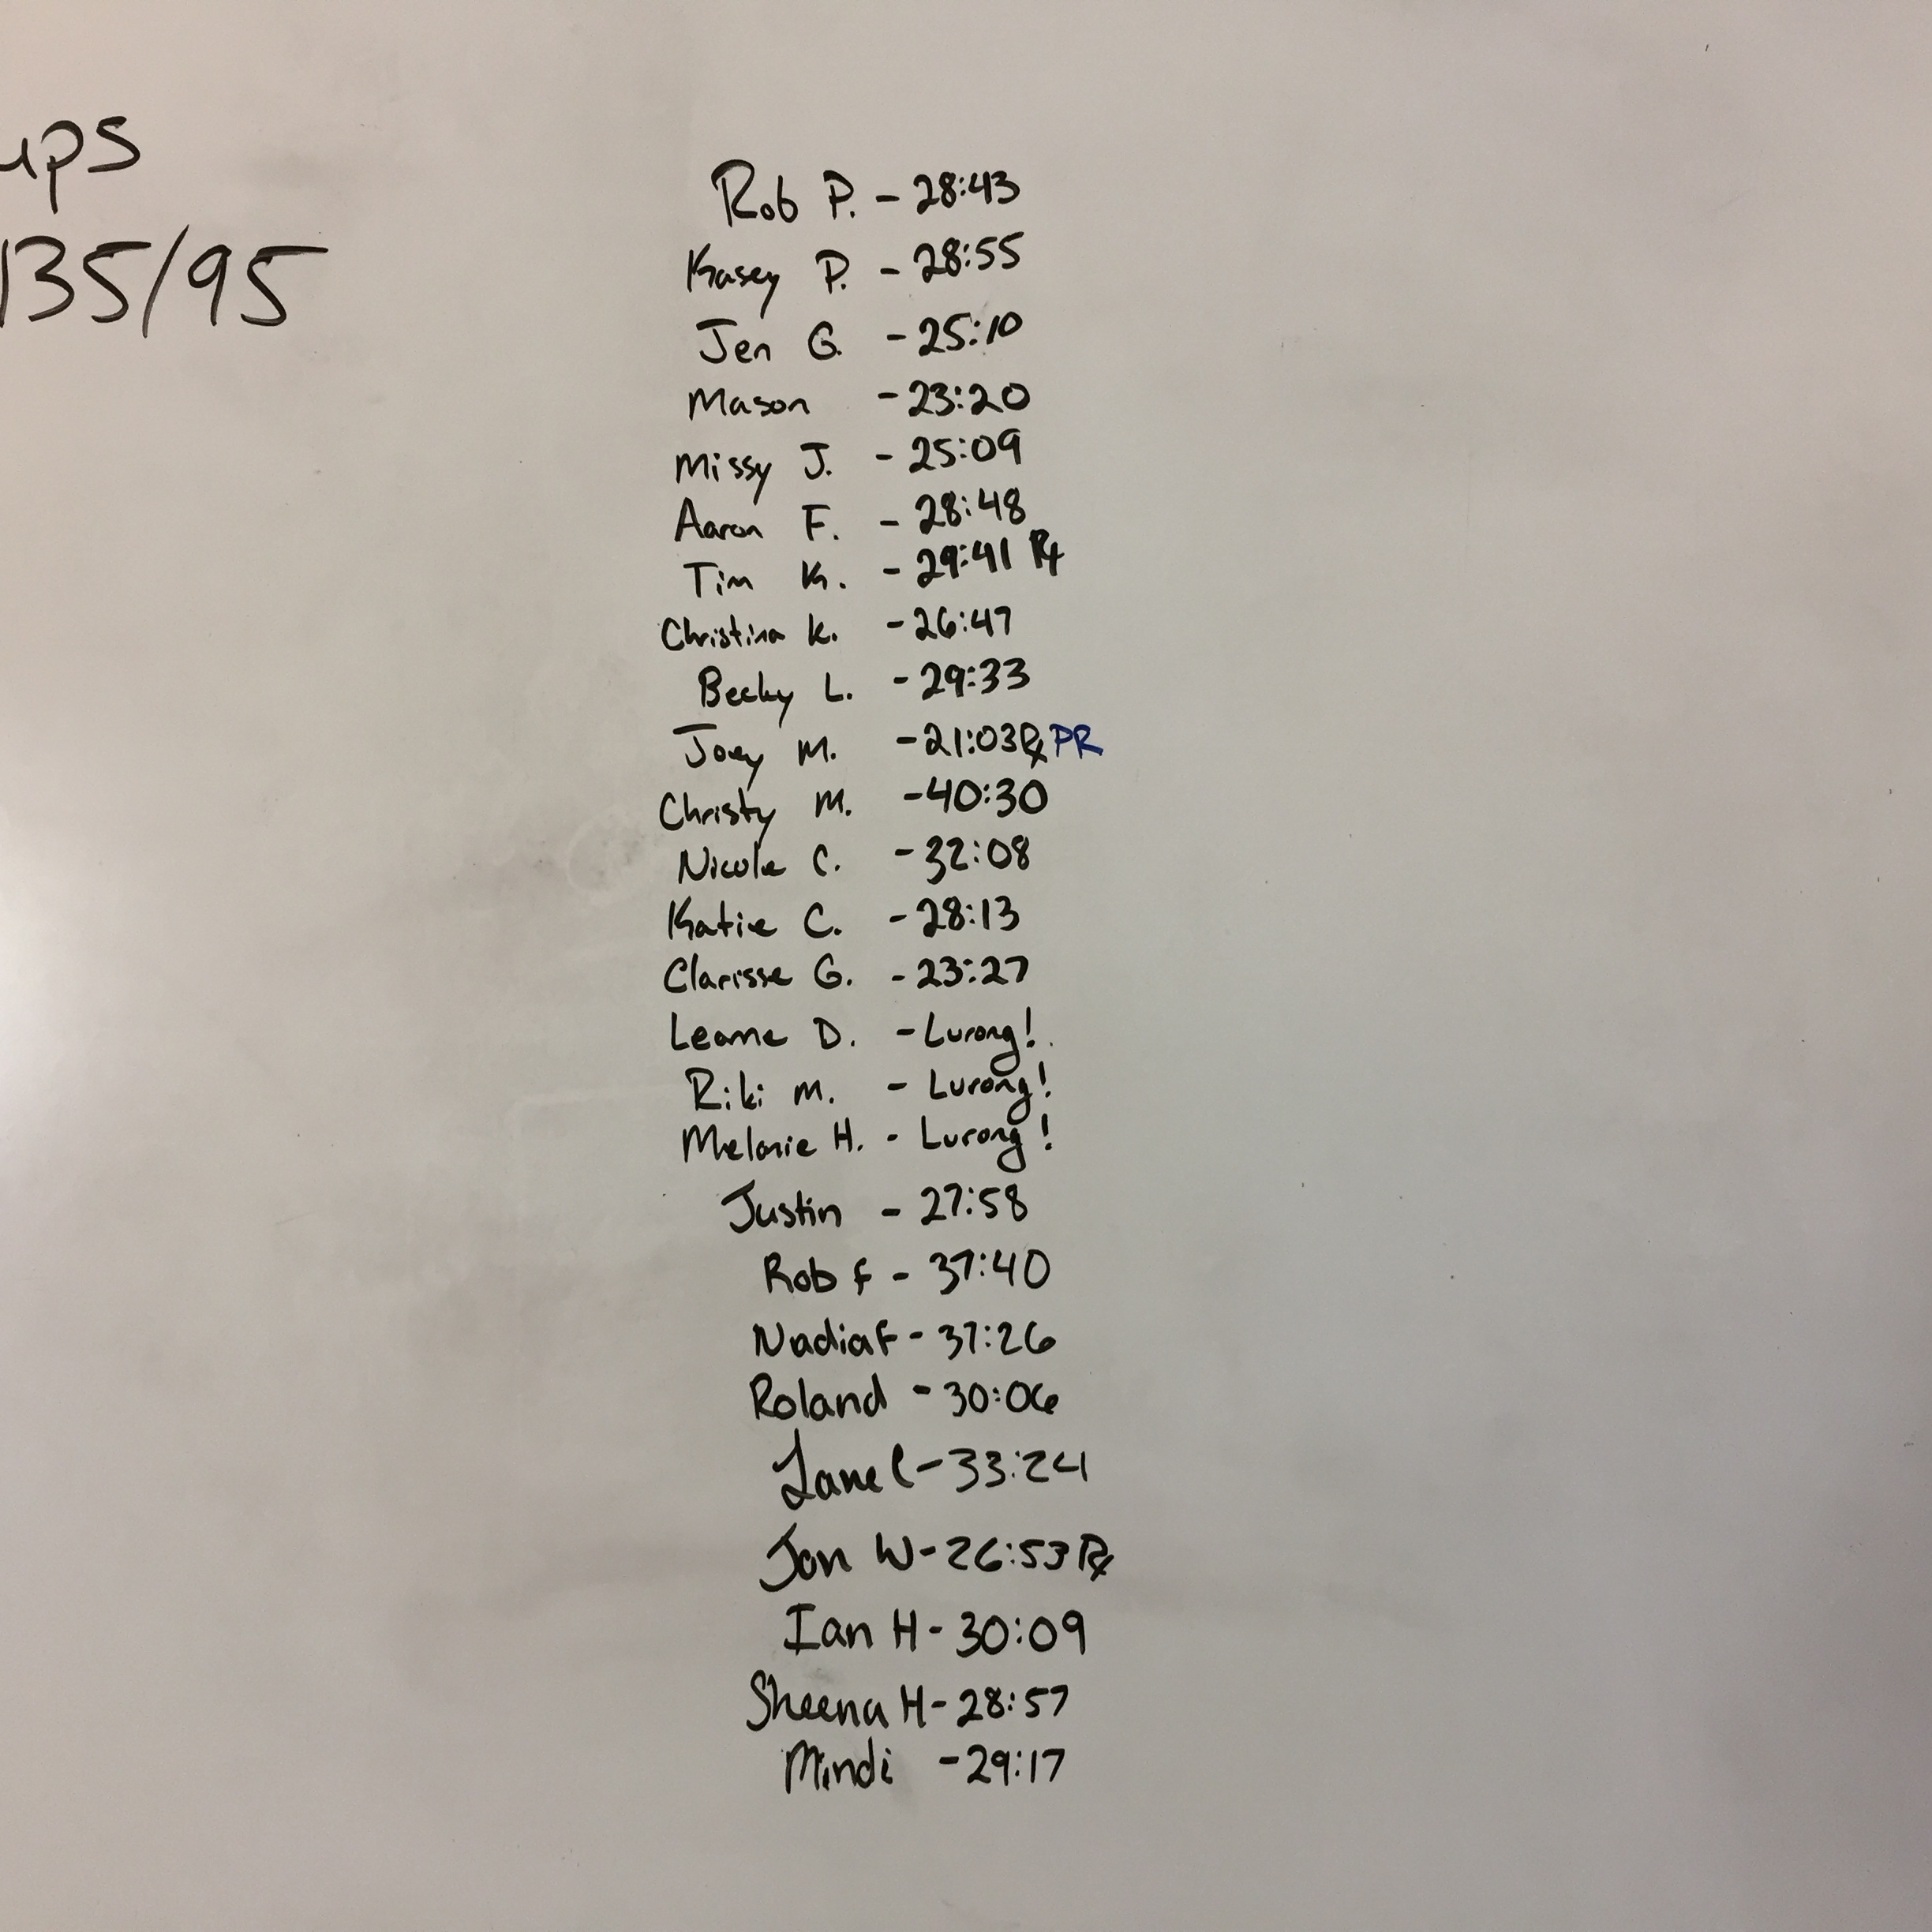 ups
135/95
Rob P. - 28:43
Kasey P. - 28:55
Jen G. - 25:10
Mason - 23:20
Missy J. - 25:09
Aaron F. - 28:48
Tim K. - 29:41 Rx
Christina K. - 26:47
Becky L. - 29:33
Joey M. - 21:03 Rx PR
Christy M. - 40:30
Nicole C. - 32:08
Katie C. - 28:13
Clarisse G. - 23:27
Leanne D. - Lurong!
Riki M. - Lurong!
Melanie H. - Lurong!
Justin - 27:58
Rob F - 37:40
Nadia F - 37:26
Roland - 30:06
33:24
Jon W - 26:53 Rx
Ian H - 30:09
Sheena H - 28:57
Mindi - 29:17